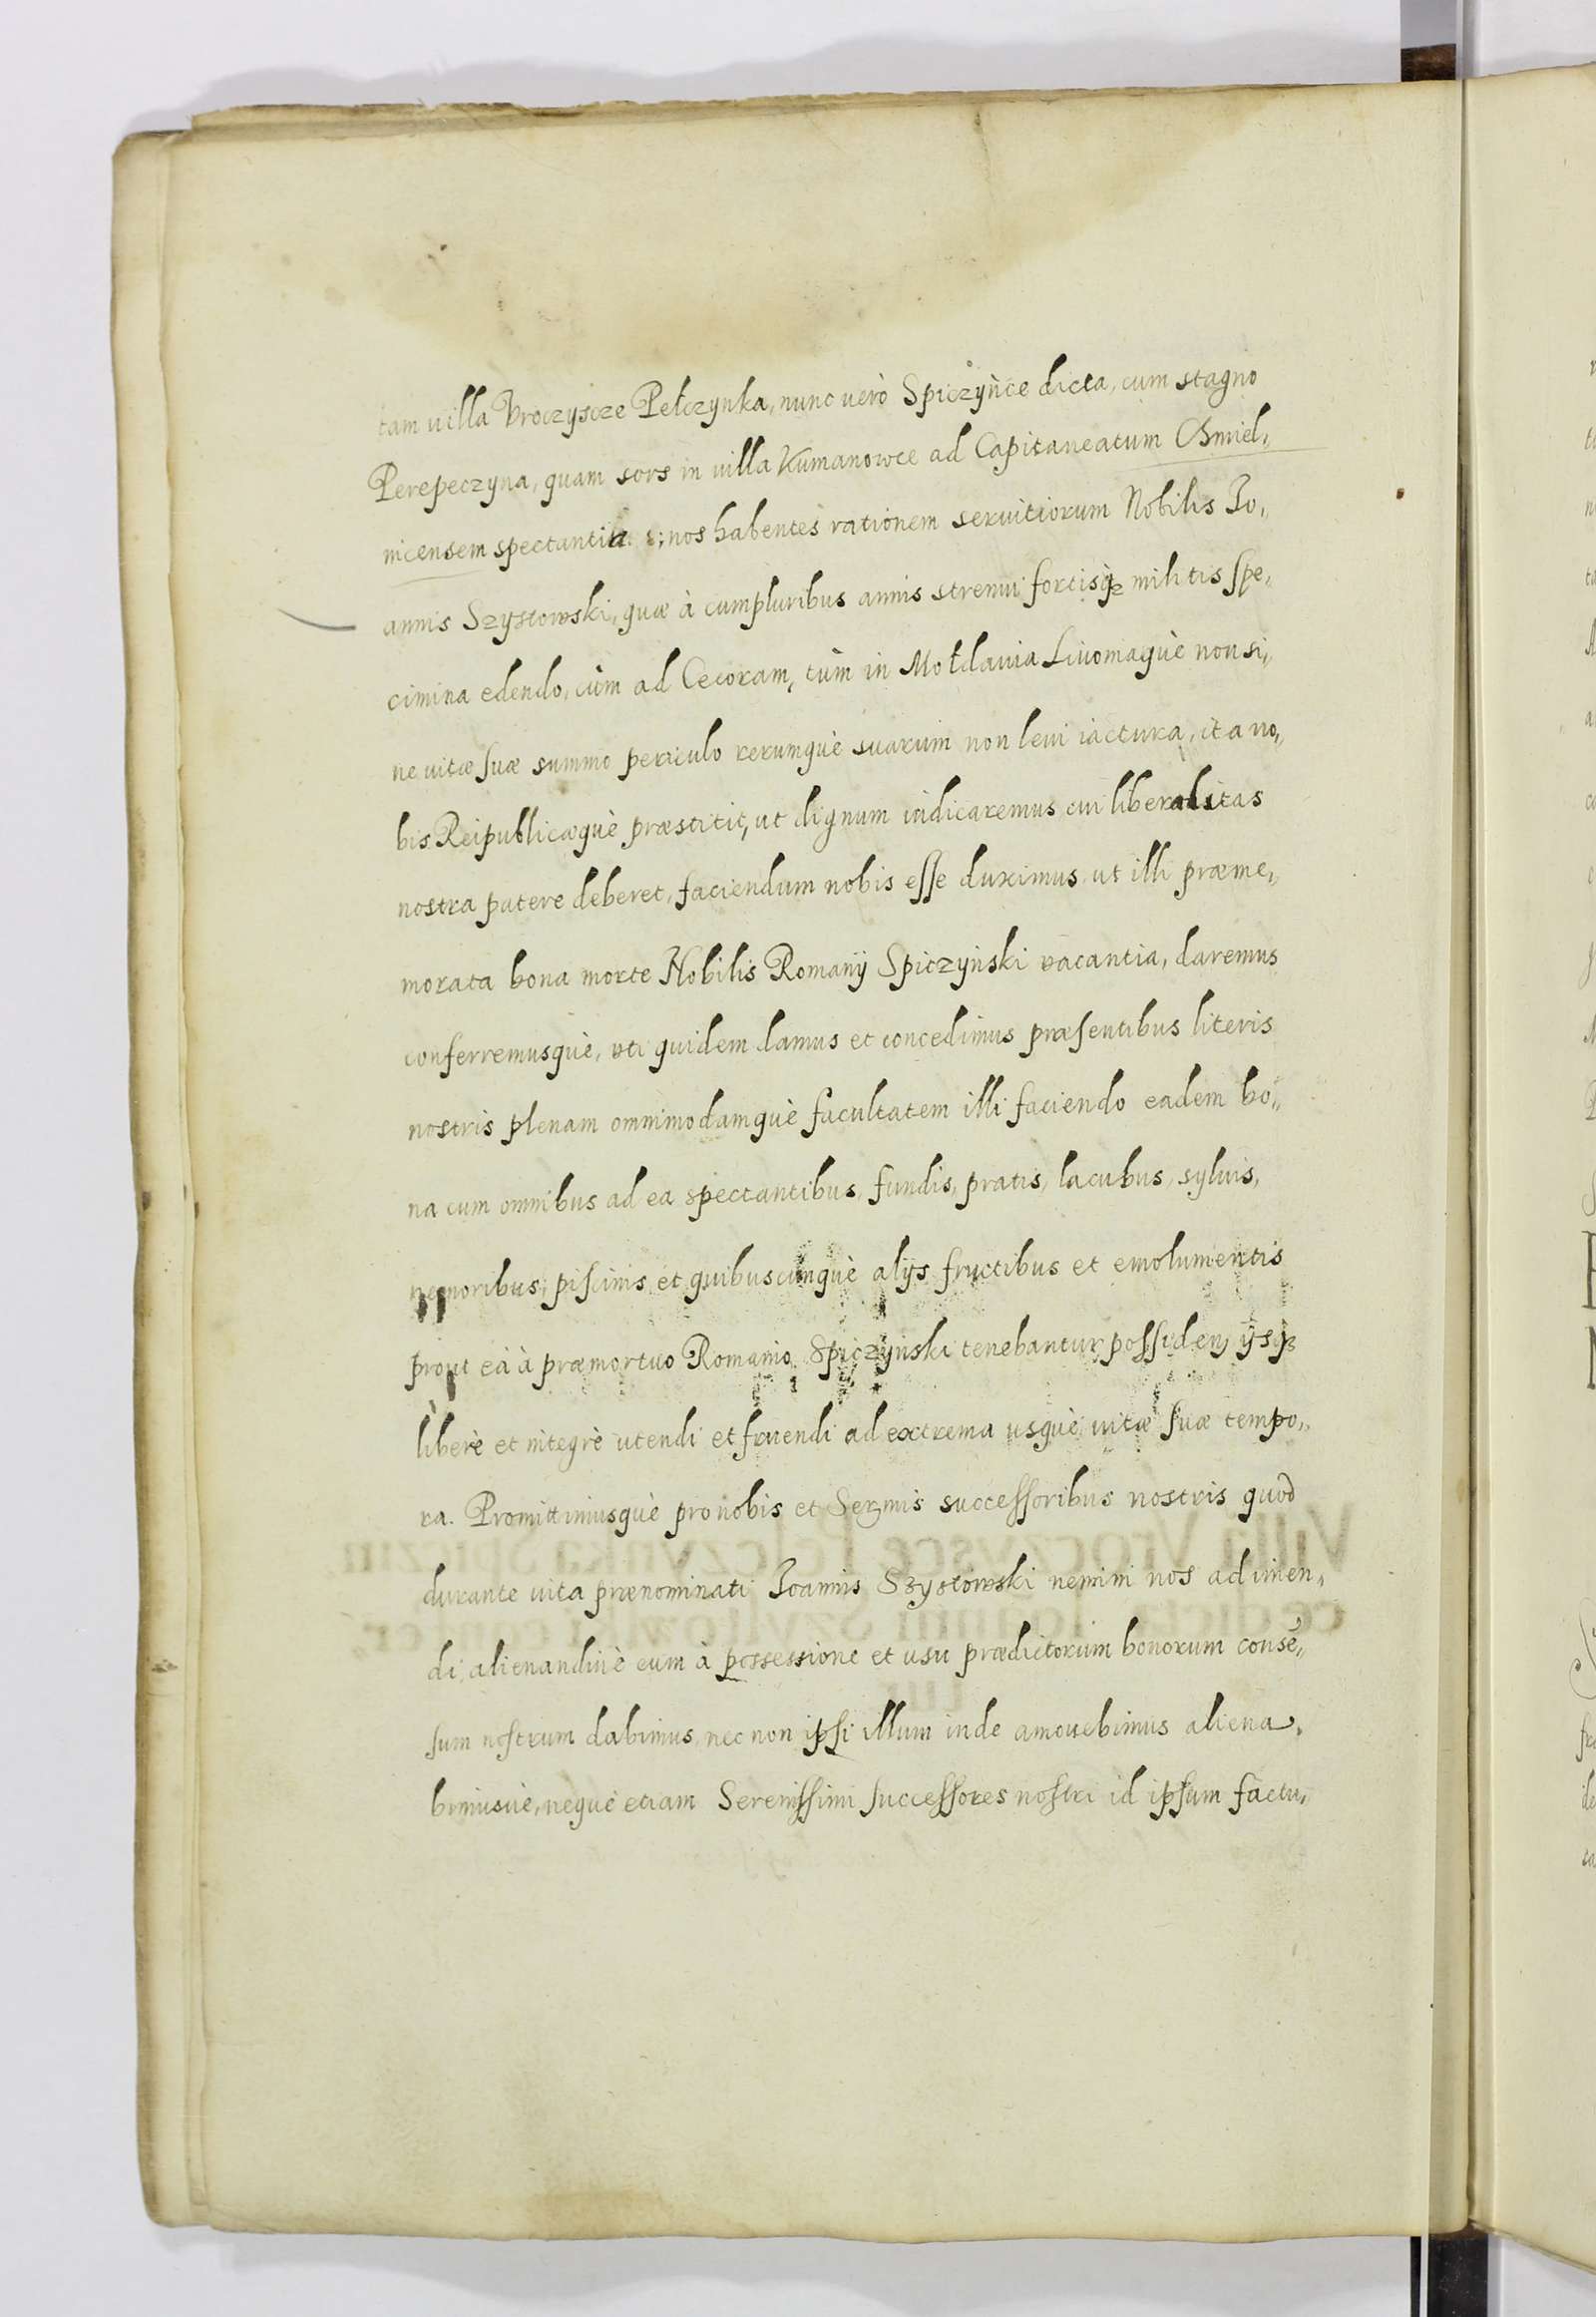 tam villa Vroczyscze Pełczynka, nunc verò Spiczynce dicta, cum stagno
Perepeczyna, quam sors in villa Kumanowce ad Capitaneatum Chmiel,,
nicensem spectantia : nos habentes rationem servitiorum Nobilis Io,,
annis Szystowski, quæ à cumpluribus annis strenui fortisq3 militis spe,,
cimina edendo, cùm ad Cecoram, tùm in Mołdavia Livoniaquè non si,,
ne vitæ suæ summo periculo rerumquè suarum non levi iactura, ita no,,
bis Reipublicæquè præstitit, ut dignum iudicaremus cui liberalitas
nostra patere deberet, faciendum nobis esse duximus ut illi præme,,
morata bona morte Nobilis Romanij Spiczynski vacantia, daremus
conferremusquè, uti quidem damus et concedimus præsentibus literis
nostris plenam omnimodamquè facultatem illi faciendo eadem bo,,
na cum omnibus ad ea spectantibus, fundis, pratis, lacubus, sylvis,
nemoribus, piscinis et quibuscunquè alijs fructibus et emolumentis
prout ea à præmortuo Romanio Spiczynski tenebantur, possiden, ijsq3
liberè et integrè utendi et fruendi ad extrema usquè vitæ suæ tempo,,
ra. Promittimusquè pro nobis et Sermis successoribus nostris quod
durante vita prænominati Ioannis Szystowski nemini nos adimen,,
di alienandivè eum à possessione et usu prædictorum bonorum consē,,
sum nostrum dabimus, nec non ipsi illum inde amovebimus aliena,,
bimusvè, nequè etiam Serenissimi successores nostri id ipsum factu,,